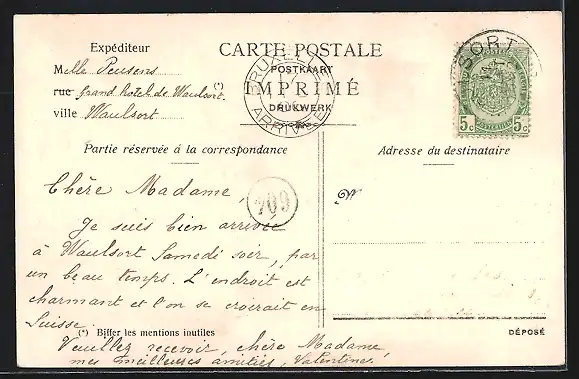 Expéditeur
CARTE POSTALE
POSTKAART
IMPRIMÉ
DRUKWERK
Melle Peusens
rue Grand hotel de Waulsort (*)
ville Waulsort
BRUXELLES
ARRIVEE
SORT
5c 5c
Partie réservée á la correspondance
Adresse du destinataire
Chère Madame,
709
M
Je suis bien arrivée
à Waulsort Samedi soir, par
un beau temps. L'endroit est
charmant et l'on se croirait en
Suisse.
(*) Biffer les mentions inutiles
DÉPOSÉ
Veuillez recevoir, chère Madame,
mes meilleures amitiés, Valentine.